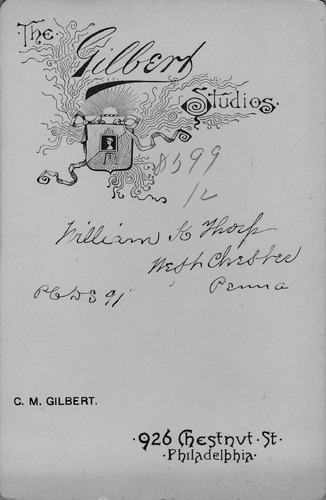 The Gilbert Studios.
8599
/2
William H Thorp
West Chester
Penna
PCDS 91
C. M. GILBERT.
·926 Chestnut·St·
·Philadelphia·